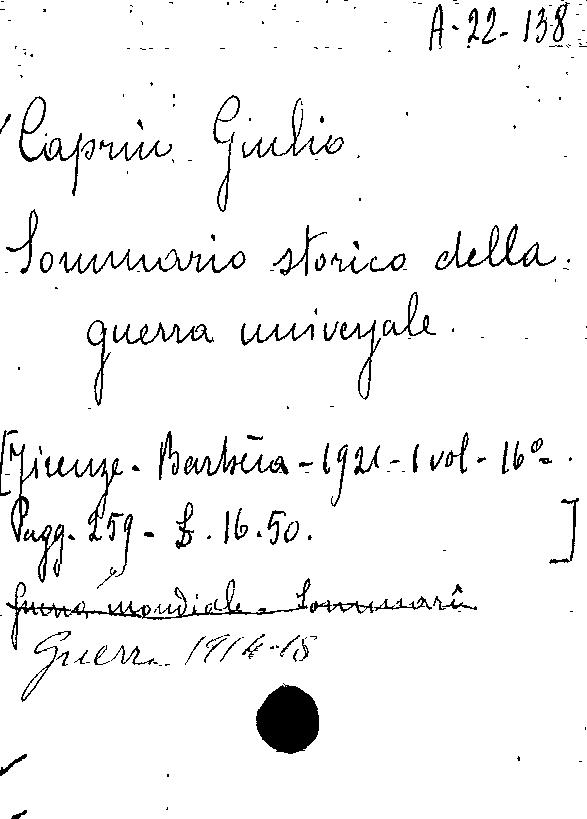 A-22-138
Caprin Giulio
Sommario storico della
guerra universale.
[Firenze - Barbèra - 1921 - 1 vol - 16° -
Pagg. 259 - £. 16.50. ]
Guerra mondiale - Sommari
Guerra 1914-18